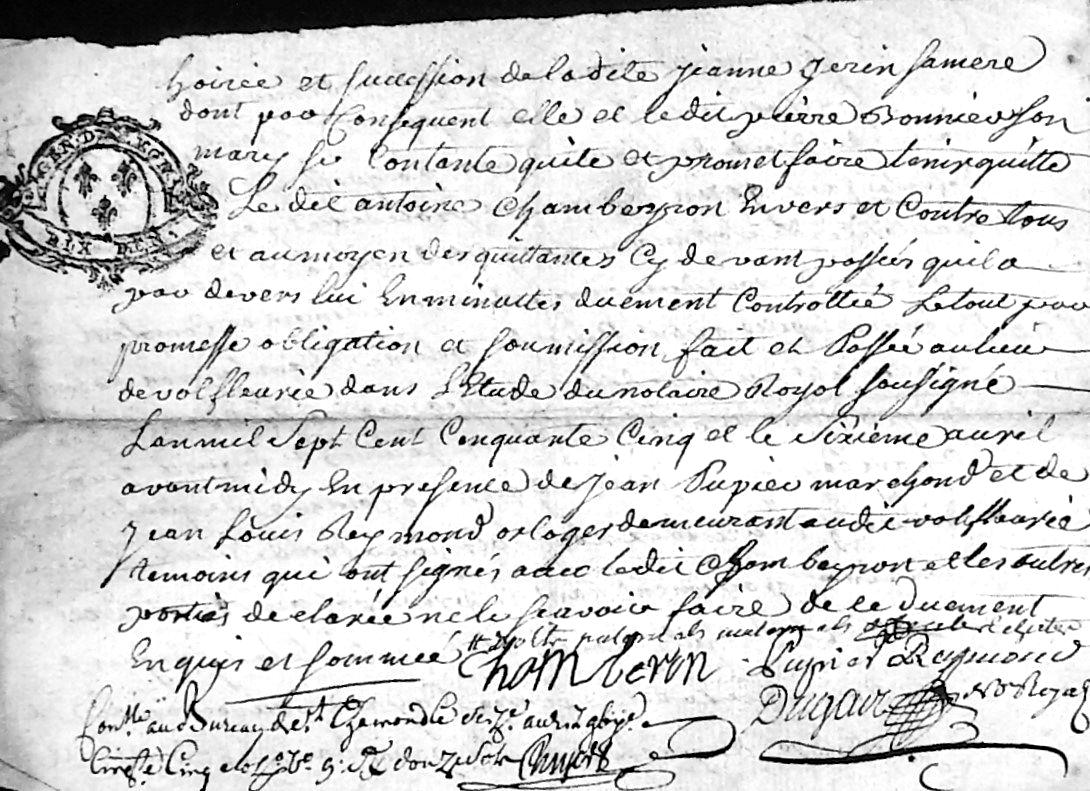 hoirie et succession de la dite jeanne jerin sa mere
dont par Consequent elle et le dit pierre Bonnier son
mary se Contante quite et promet faire tenir quitte
Le dit antoine Chambeyron Envers et Contre tous
et au moyen des quittances Cy devant passées quil a
par devers lui En minuttes duement Controllée Le tout par
promesse obligation et soumission fait et Passé au lieu
de valfleurie dans L'Etude du notaire Royal sousigné
Lan mil Sept Cent Cinquante Cinq et le Sixième avril
avant midy En presence de Jean Pupier marchand et de
Jean Louis Reymond orloger demeurant audit valfleurie
temoins qui ont signés avec ledit Chambeyron et les autres
parties declarée ne le scavoir faire de ce Duement
Enquis et sommée
Chamberon Pupier Reymond
Dugair no Royal
Con.lle au Bureau de St Chamond le avril
Cinq douze sols